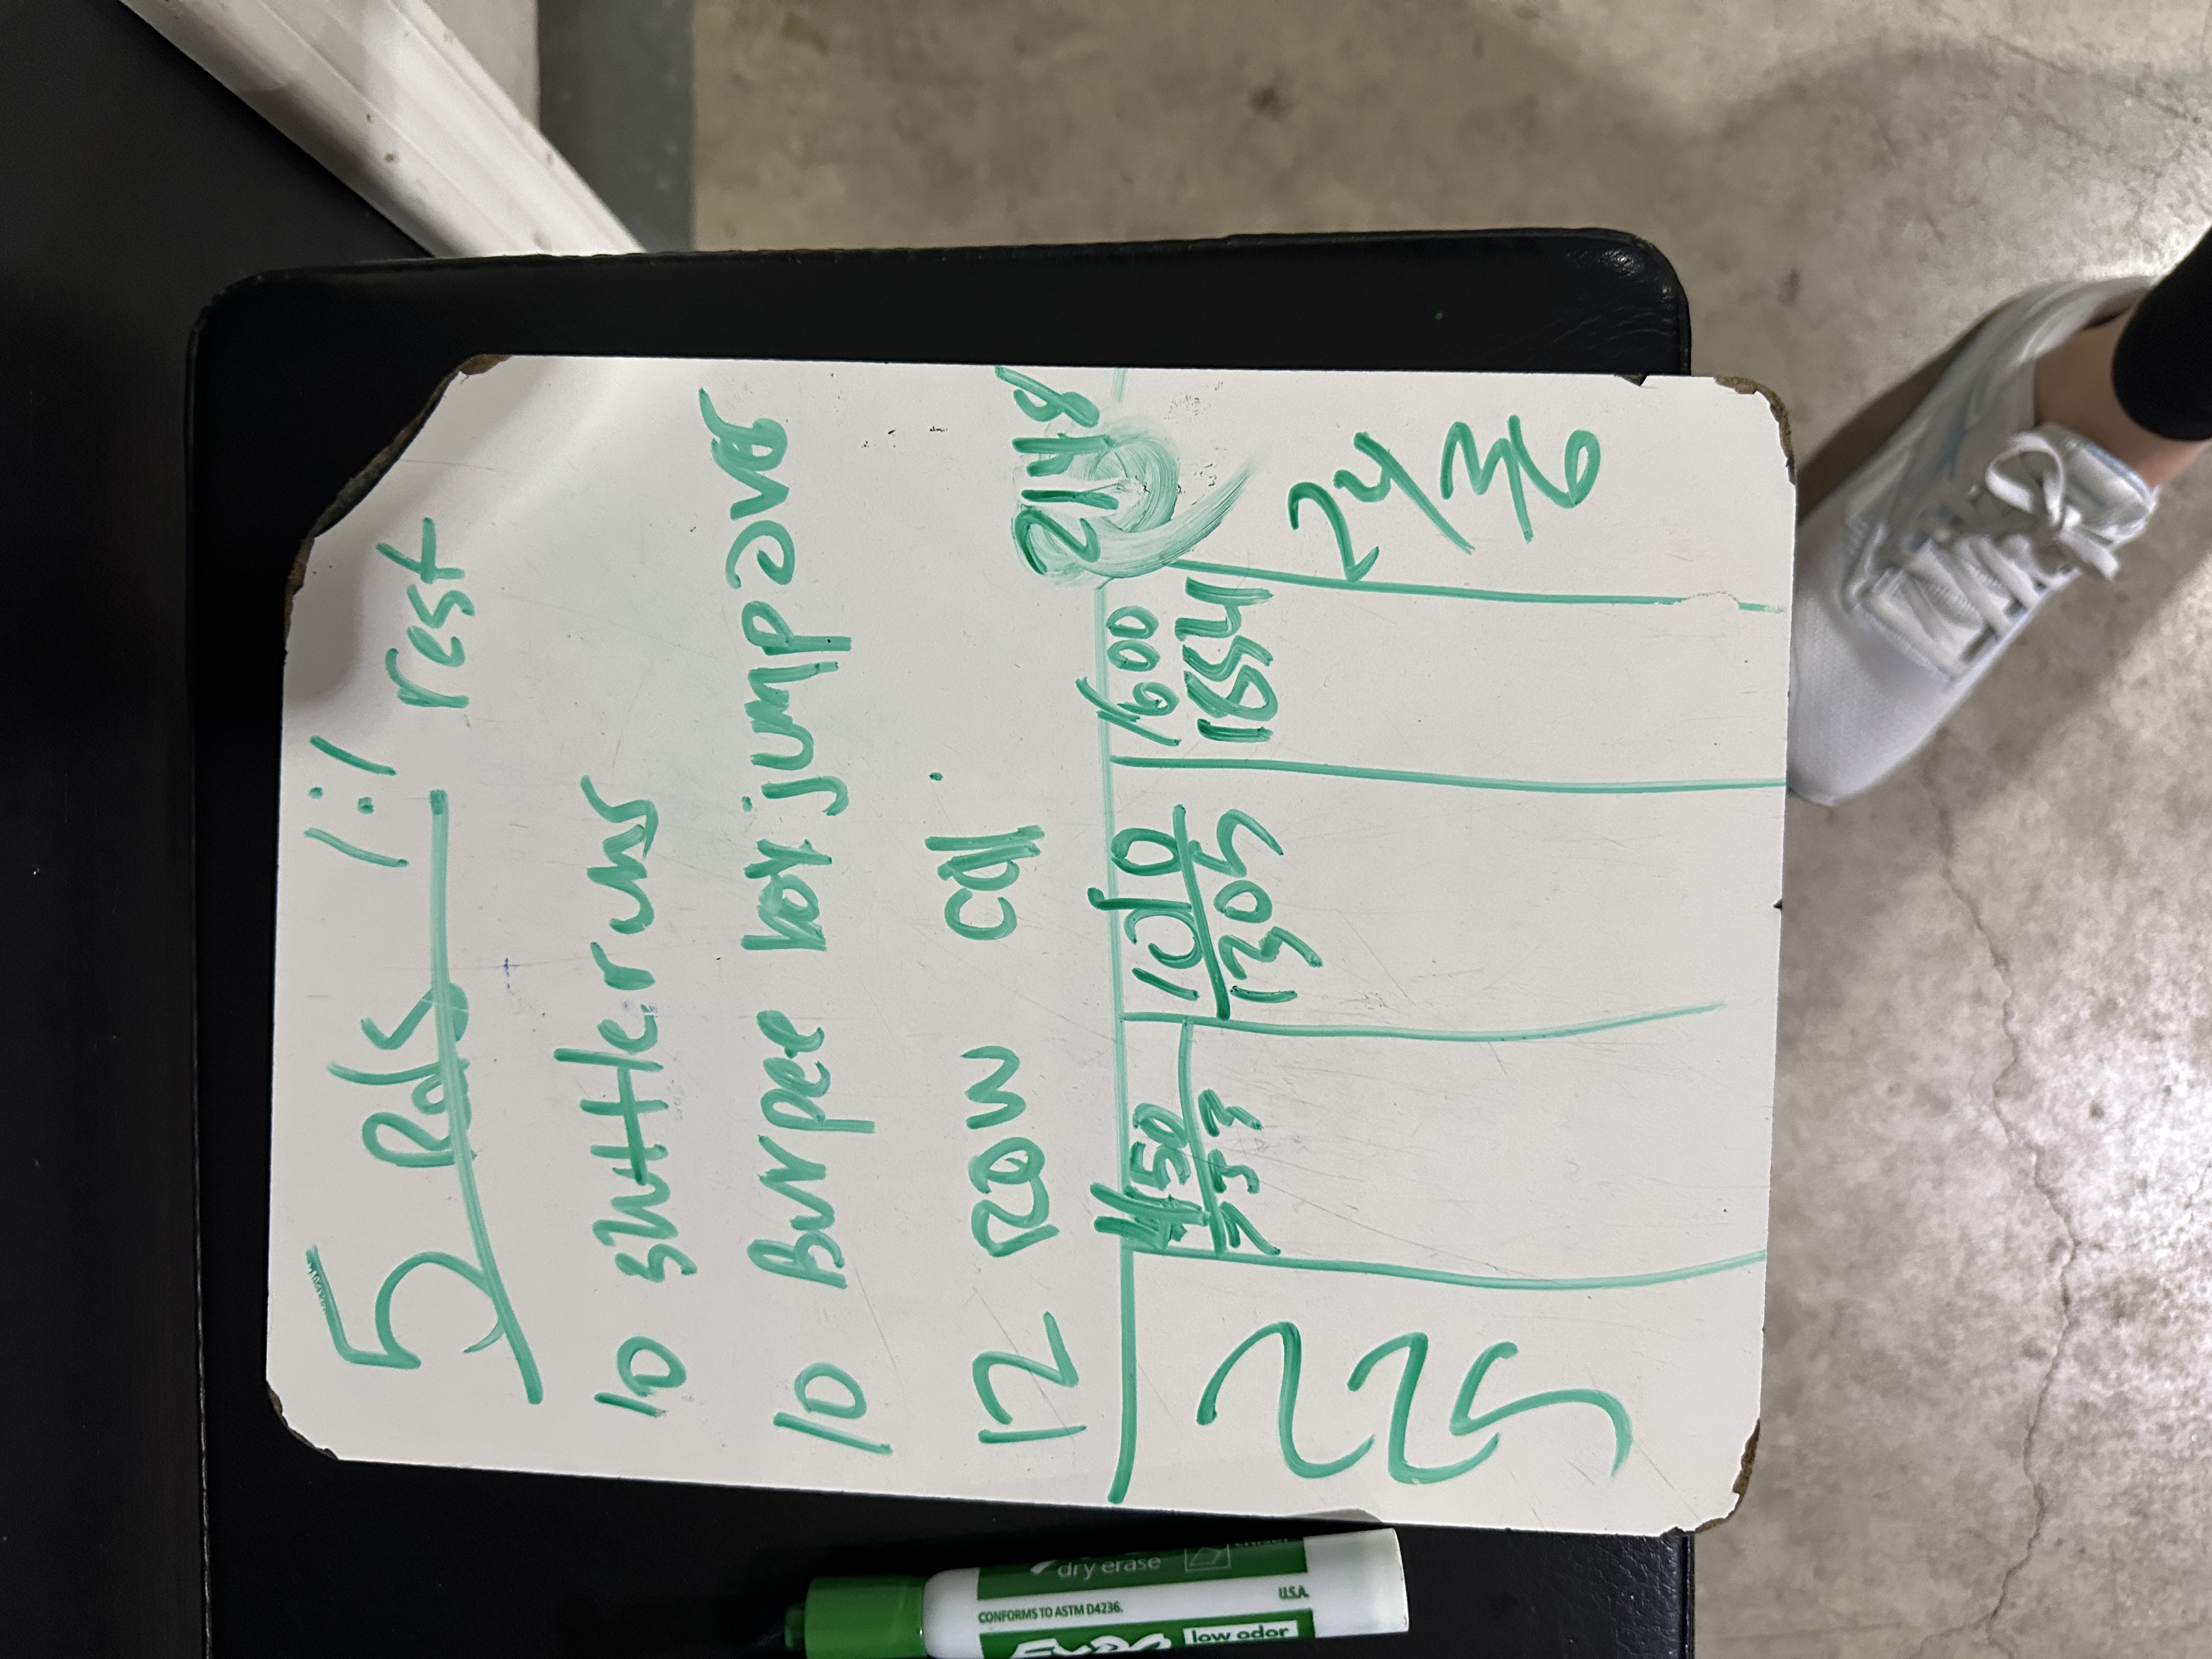 5 Rds 1:1 rest
10 shuttle runs
10 Burpee box jump over
12 Row cal
2148
450
1010
1600
733
1305
1854
dry erase
CONFORMS TO ASTM D4236
low odor
U.S.A.